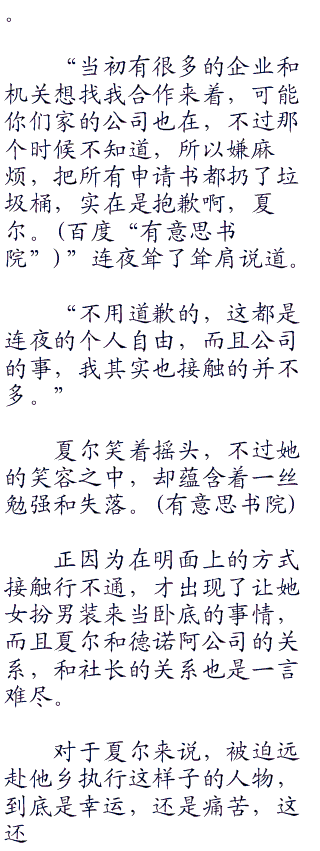 。
“当初有很多的企业和
机关想找我合作来着，可能
你们家的公司也在，不过那
个时候不知道，所以嫌麻
烦，把所有申请书都扔了垃
圾桶，实在是抱歉啊，夏
尔。(百度“有意思书
院”)”连夜耸了耸肩说道。
“不用道歉的，这都是
连夜的个人自由，而且公司
的事，我其实也接触的并不
多。”
夏尔笑着摇头，不过她
的笑容之中，却蕴含着一丝
勉强和失落。(有意思书院)
正因为在明面上的方式
接触行不通，才出现了让她
女扮男装来当卧底的事情，
而且夏尔和德诺阿公司的关
系，和社长的关系也是一言
难尽。
对于夏尔来说，被迫远
赴他乡执行这样子的人物，
到底是幸运，还是痛苦，这
还